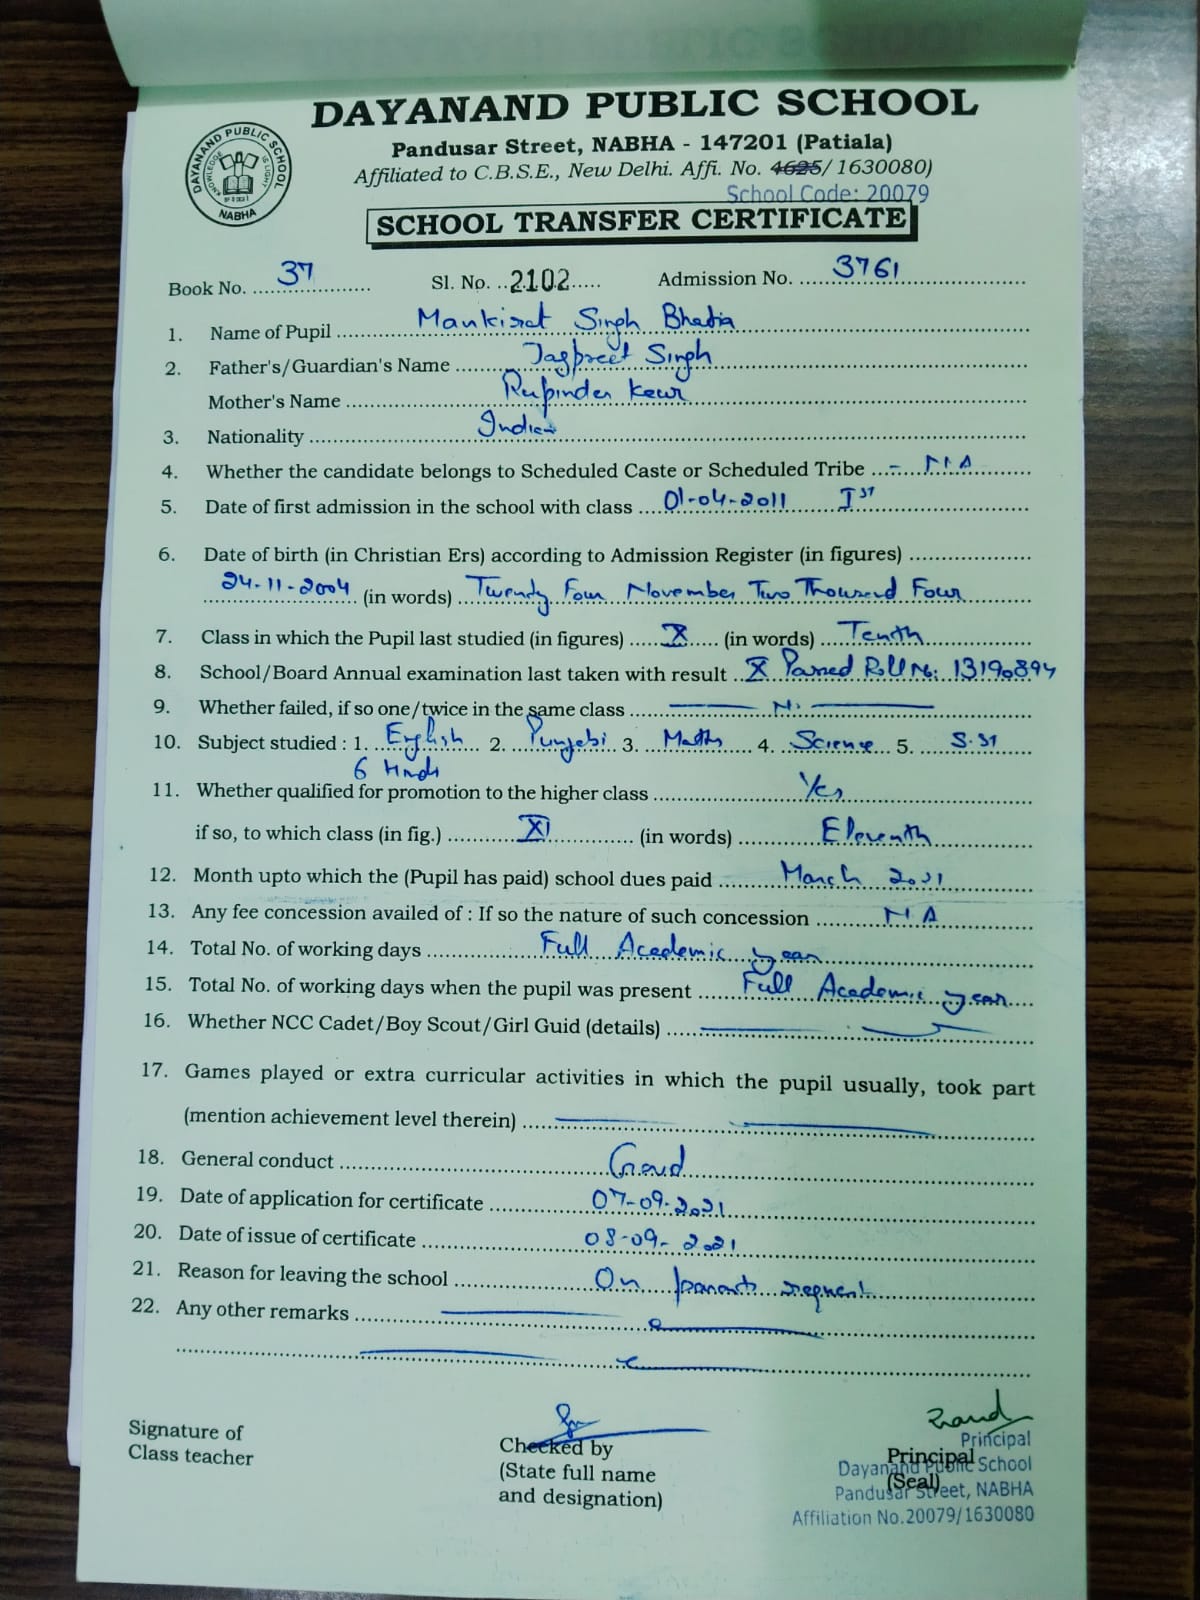 DAYANAND PUBLIC SCHOOL
DAYANAND PUBLIC SCHOOL
KNOWLEDGE IS LIGHT
NABHA
Pandusar Street, NABHA - 147201 (Patiala)
Affiliated to C.B.S.E., New Delhi. Affi. No. 4625/ 1630080)
School Code: 20079
SCHOOL TRANSFER CERTIFICATE
Book No. 37 Sl. No. 2102 Admission No. 3761
1. Name of Pupil Mankirat Singh Bhatia
2. Father's/Guardian's Name Jagpreet Singh
Mother's Name Rupinder Kaur
3. Nationality Indian
4. Whether the candidate belongs to Scheduled Caste or Scheduled Tribe - NA
5. Date of first admission in the school with class 01-04-2011 Ist
6. Date of birth (in Christian Ers) according to Admission Register (in figures)
24-11-2004 (in words) Twenty Four November Two Thousand Four
7. Class in which the Pupil last studied (in figures) X (in words) Tenth
8. School/Board Annual examination last taken with result X Passed Roll No: 13190894
9. Whether failed, if so one/twice in the same class No
10. Subject studied : 1. English 2. Punjabi 3. Maths 4. Science 5. S.St
6 Hindi
11. Whether qualified for promotion to the higher class Yes
if so, to which class (in fig.) XI (in words) Eleventh
12. Month upto which the (Pupil has paid) school dues paid March 2021
13. Any fee concession availed of : If so the nature of such concession NA
14. Total No. of working days Full Academic year
15. Total No. of working days when the pupil was present Full Academic year
16. Whether NCC Cadet/Boy Scout/Girl Guid (details)
17. Games played or extra curricular activities in which the pupil usually, took part
(mention achievement level therein)
18. General conduct Good
19. Date of application for certificate 07-09-2021
20. Date of issue of certificate 08-09-2021
21. Reason for leaving the school On parents request
22. Any other remarks
Signature of
Class teacher
Checked by
(State full name
and designation)
Principal
(Seal)
Principal
Dayanand Public School
Pandusar Street, NABHA
Affiliation No.20079/1630080